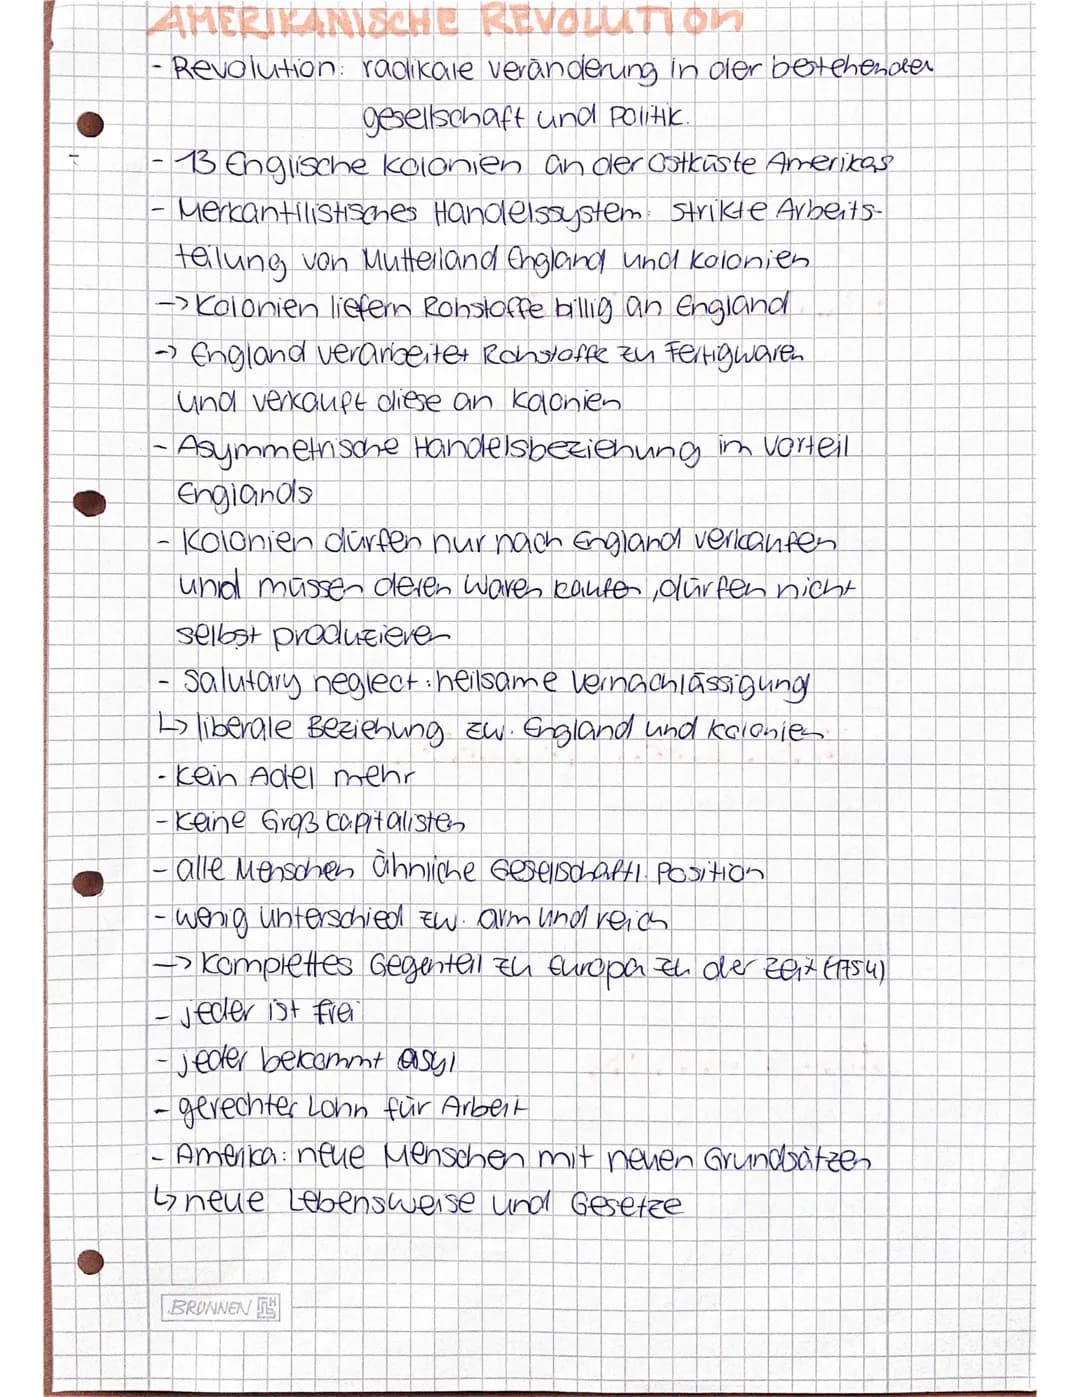 AMERIKANISCHE REVOLUTION
- Revolution: radikale veränderung in der bestehenden
gesellschaft und Politik.
- 13 Englische Kolonien an der Ostküste Amerikas
- Merkantilistisches Handelssystem: strikte Arbeits-
teilung von Mutterland England und Kolonien
-> Kolonien liefern Rohstoffe billig an England
-> England verarbeitet Rohstoffe zu Fertigwaren
und verkauft diese an Kolonien
- Asymmetrische Handelsbeziehung im Vorteil
Englands
- Kolonien dürfen nur nach England verkaufen
und müssen deren Waren kaufen, dürfen nicht
selbst produzieren
- Salutary neglect: heilsame Vernachlässigung
↳ liberale Beziehung zw. England und Kolonien
- kein Adel mehr
- keine Großkapitalisten
- alle Menschen ähnliche Gesellschaftl. Position
- wenig unterschied zw. arm und reich
-> komplettes Gegenteil zu Europa zu der Zeit (1754)
- jeder ist frei
- jeder bekommt asyl
- gerechter Lohn für Arbeit
- Amerika: neue Menschen mit neuen Grundsätzen
↳ neue Lebensweise und Gesetze
BRUNNEN